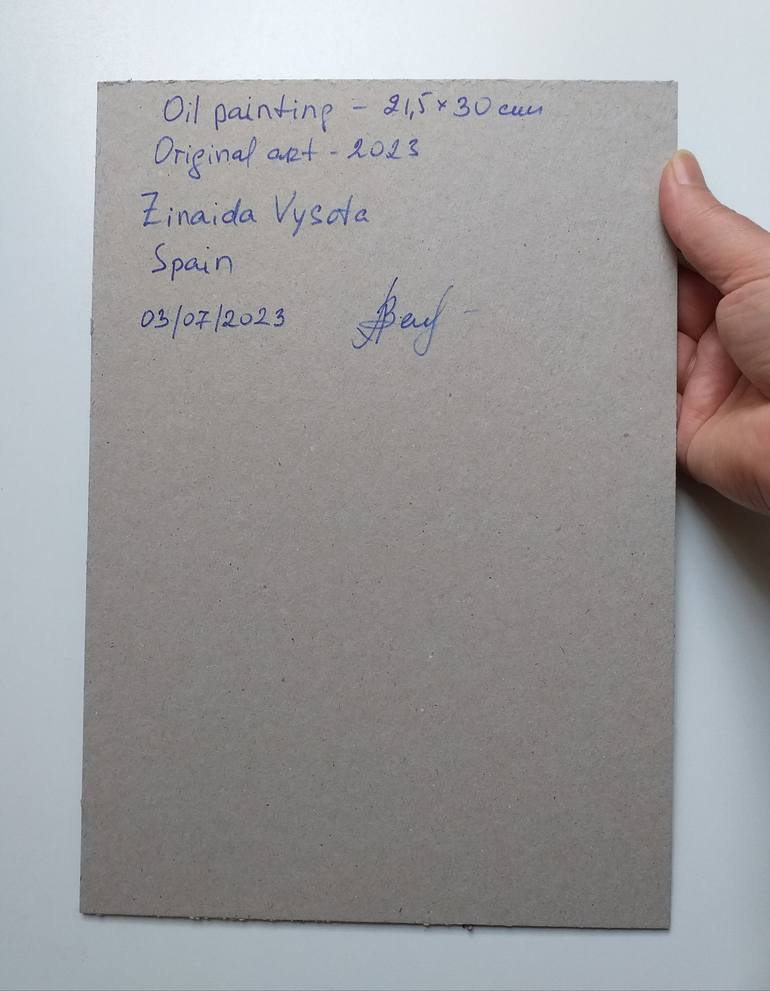 Oil painting - 21,5 x 30 cm
Original art - 2023
Zinaida Vysota
Spain
03/07/2023